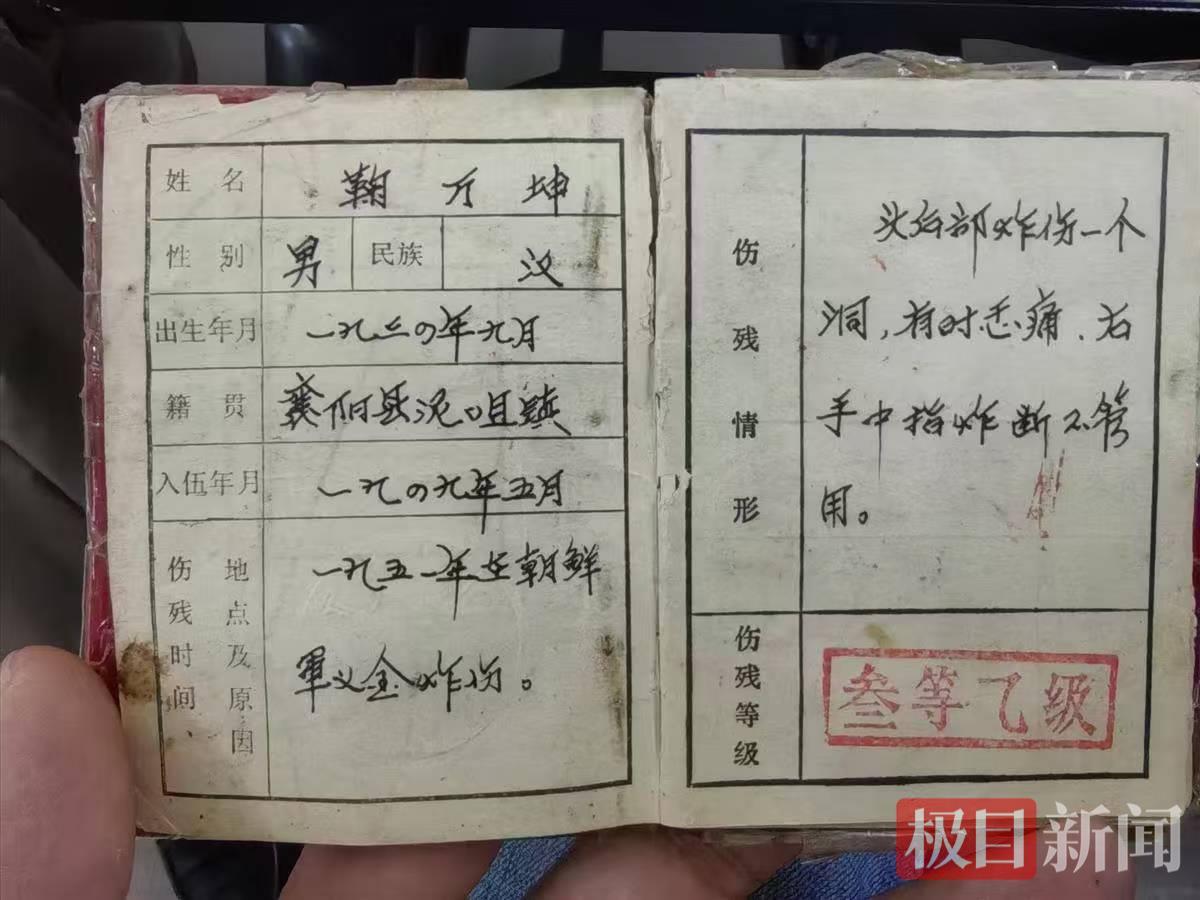 姓名 鞠万坤
性别 男 民族 汉
出生年月 一九三四年九月
籍贯 襄阳县泥咀镇
入伍年月 一九四九年五月
伤残时间 地点及原因 一九五一年在朝鲜
軍义金炸伤。
伤残情形
头后部炸伤一个
洞,有时悉痛.右
手中指炸断不管
用。
伤残等级 叁等乙级
极目新闻